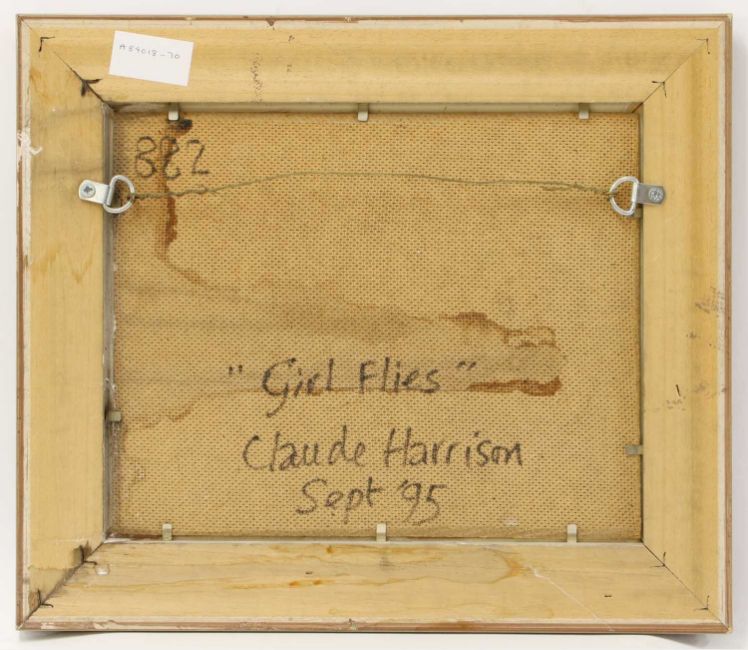 A89013-70
882
"Girl Flies"
Claude Harrison
Sept '95